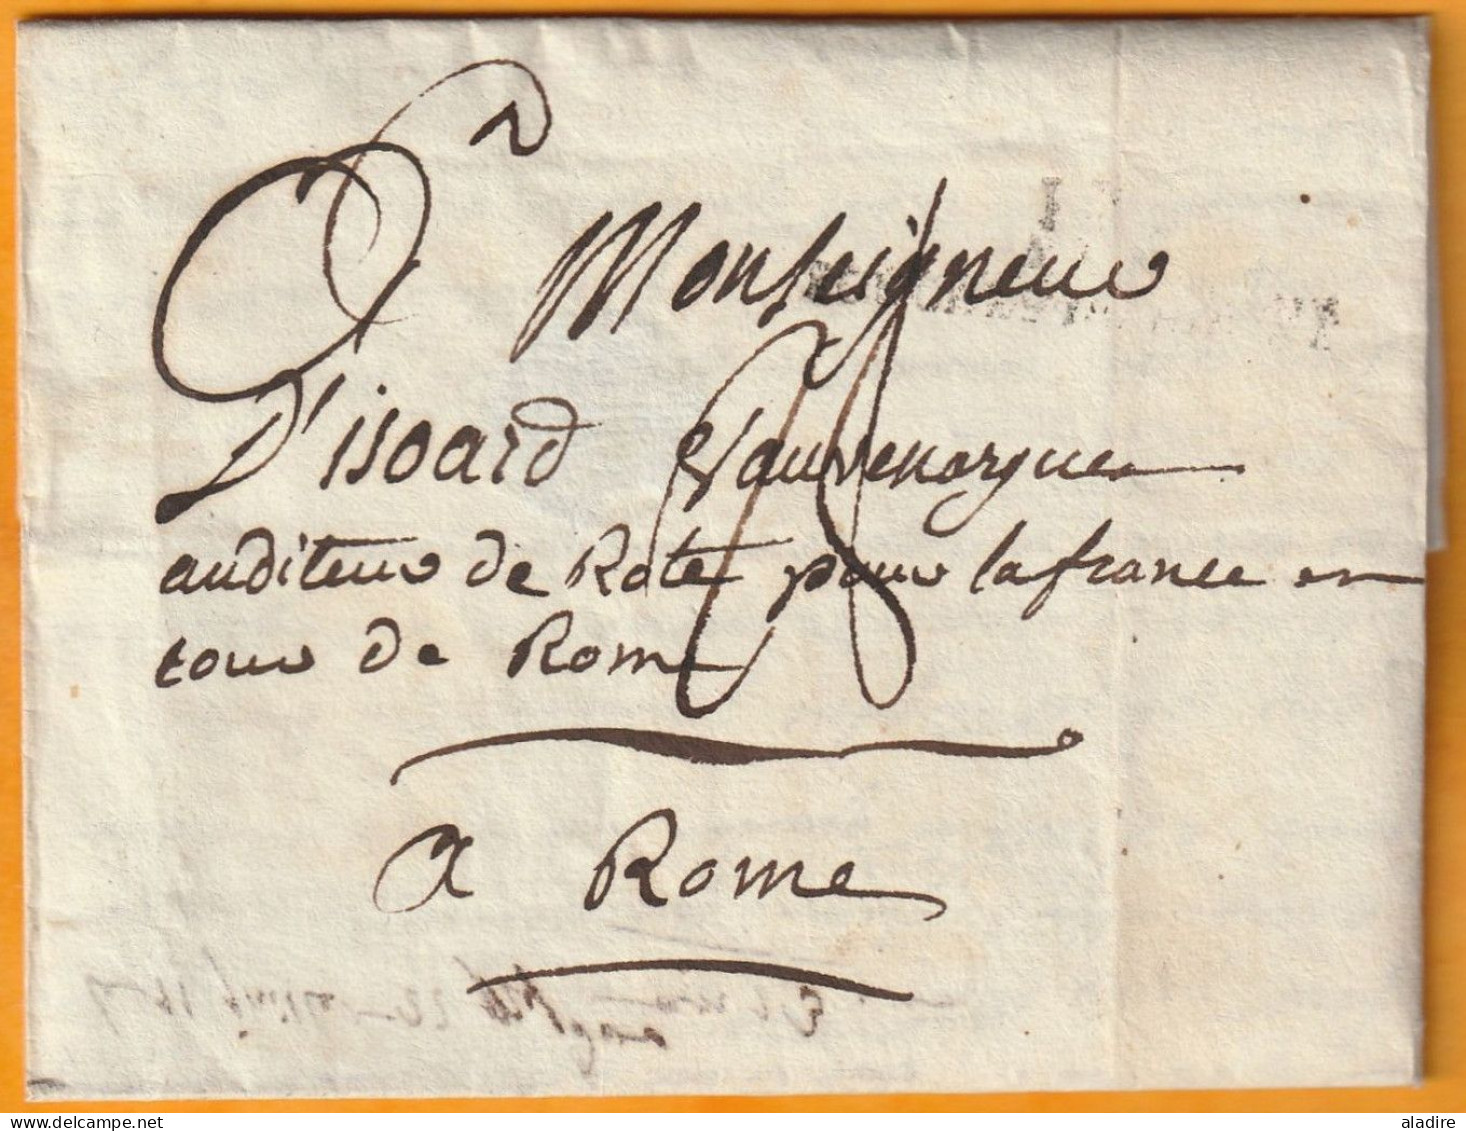 A
Monseigneur
D'isoard Vauvenargue
auditeur de Rote pour la france en
cour de Rome
a Rome
aladire